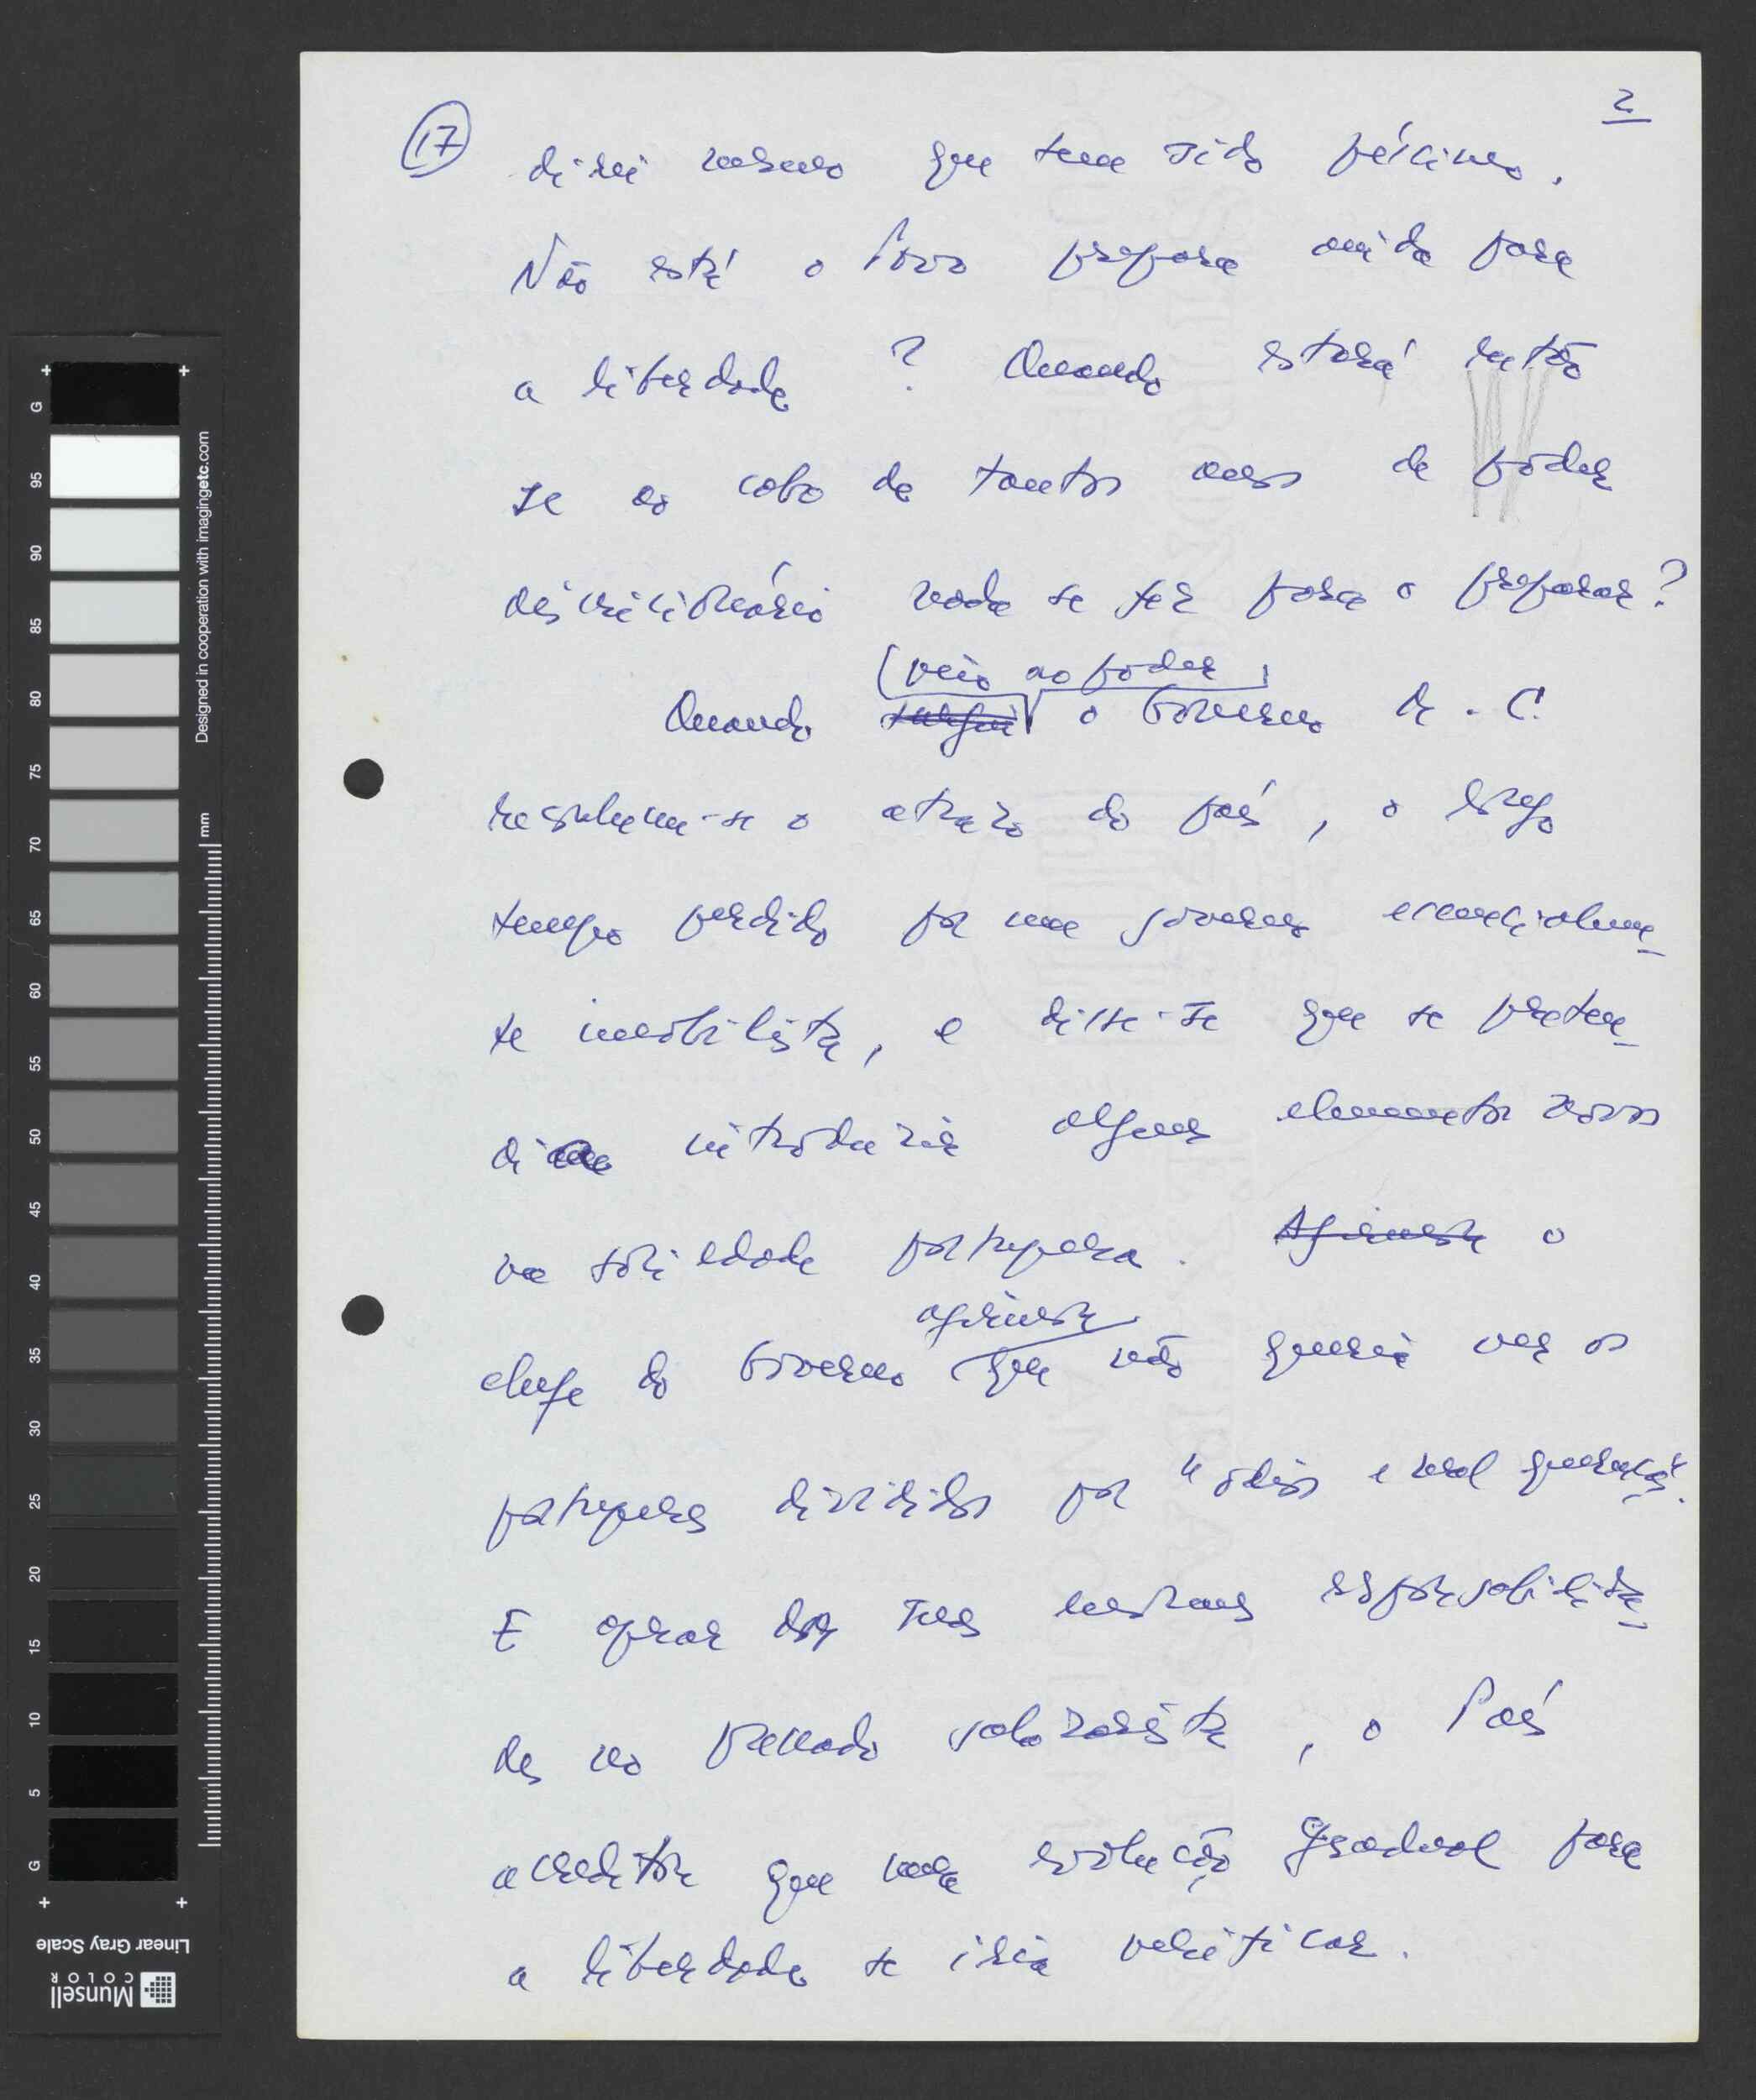 2
17 direi mesmo que tem sido péssimo.
Não está o Povo preparado ainda para
a liberdade? Quando estará então
se ao cabo de tantos anos de poder
discricionário nada se fez para o preparar?
(veio ao poder)
Quando surgiu o Governo M. C.
reconheceu-se o atraso do país, o largo
tempo perdido por um governo essencialmen-
te imobilista, e disse-se que se preten-
dia introduzir alguns elementos novos
na sociedade portuguesa. Afirmou o
afirmou
chefe do Governo que não queria ver os
portugueses divididos por "ódios e mal querenças".
E apesar das suas enormes responsabilida-
des no passado salazarista, o País
acreditou que uma evolução gradual para
a liberdade se iria verificar.
G 95 90 85 80 75 70 65 60 55 50 45 40 35 30 25 20 15 10 5 G
Designed in cooperation with imagingetc.com
mm
Linear Gray Scale
Munsell
COLOR